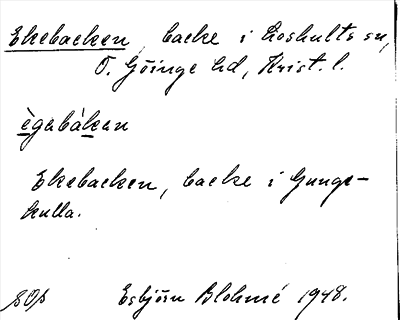 Ekebacken, backe i Loshults sn,
Ö. Göinge hd, Krist. l.
ègabàkan
Ekebacken, backe i Gunge-
kulla.
Esbjörn Blohmé 1948.